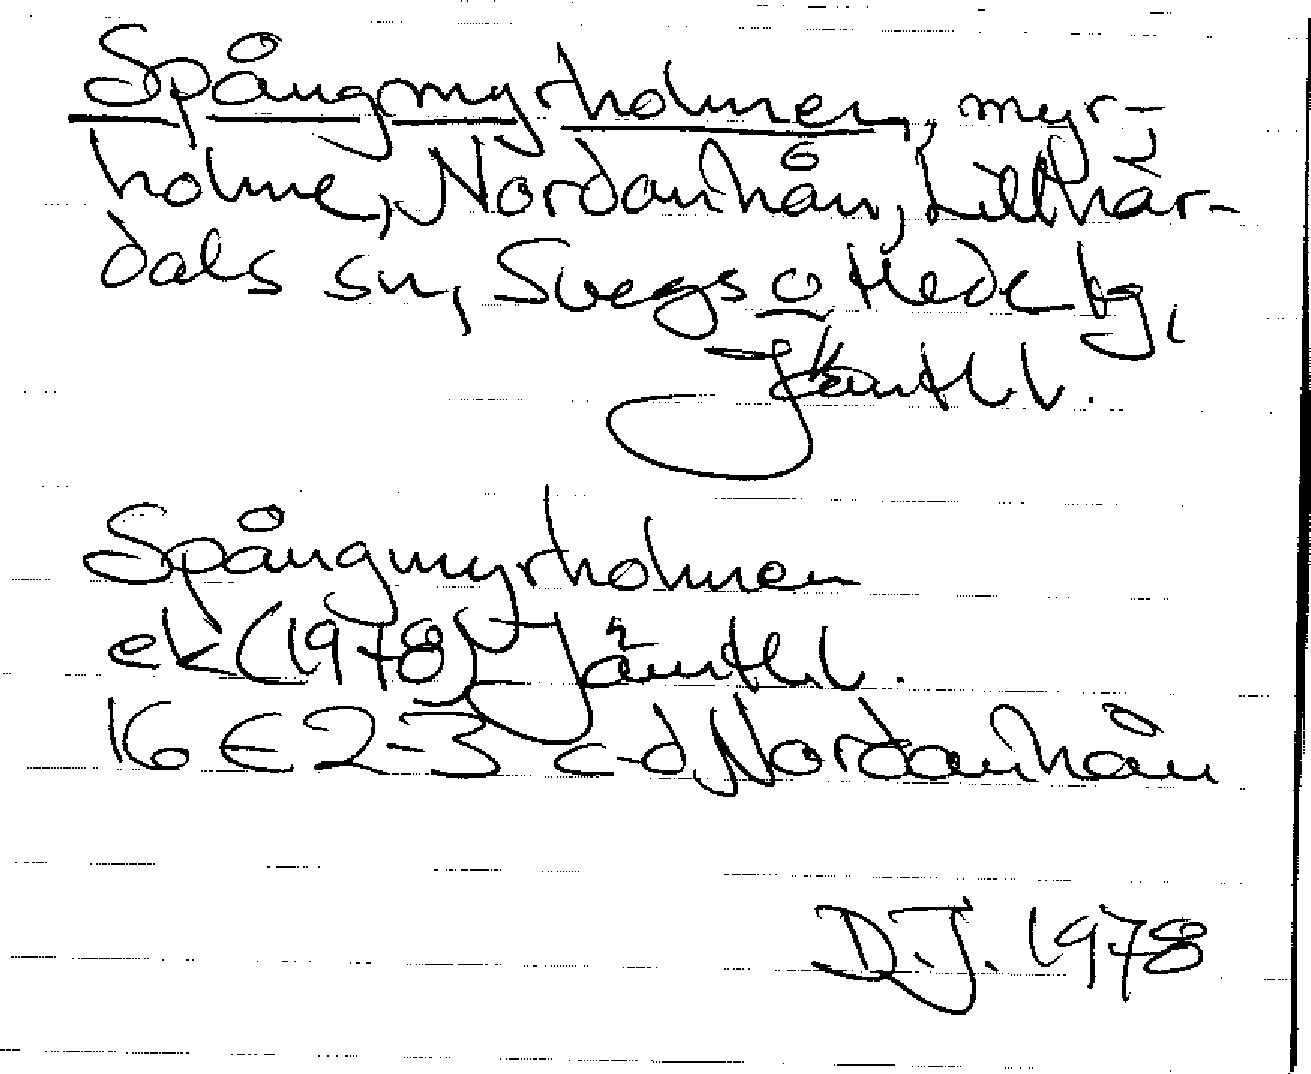 Spångmyrholmen, myr-
holme, Nordanhån, Lillhär-
dals sn, Svegs o Hede tg,
Jämtl. l.
Spångmyrholmen
ek (1978) Jämtl. l.
16 E 2-3 c-d, Nordanhån
D.J. 1978